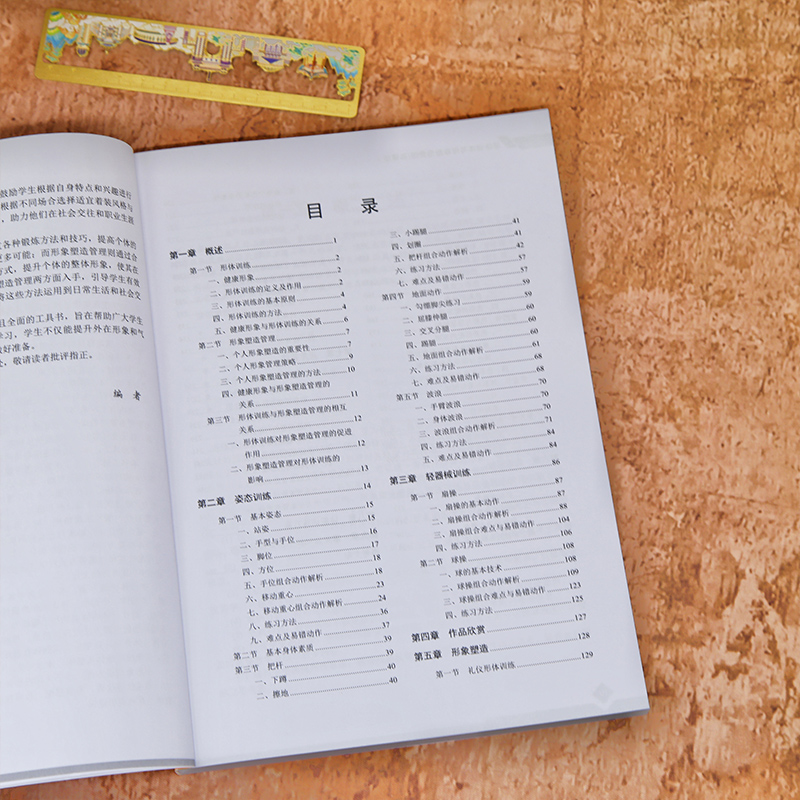 鼓励学生根据自身特点和兴趣进行
根据不同场合选择适宜着装风格与
，助力他们在社会交往和职业生涯
各种锻炼方法和技巧，提高个体的
更多可能；而形象塑造管理则通过合
方式，提升个体的整体形象，使其在
塑造管理两方面入手，引导学生有效
将这些方法运用到日常生活和社会交
且全面的工具书，旨在帮助广大学生
学习，学生不仅能提升外在形象和气
做好准备。
处，敬请读者批评指正。
编 者
目 录
第一章 概述 1
第一节 形体训练 2
一、健康形象 2
二、形体训练的定义及作用 2
三、形体训练的基本原则 4
四、形体训练的方法 4
五、健康形象与形体训练的关系 6
第二节 形象塑造管理 7
一、个人形象塑造的重要性 7
二、个人形象管理策略 9
三、个人形象塑造管理的方法 10
四、健康形象与形象塑造管理的
关系 11
第三节 形体训练与形象塑造管理的相互
关系 12
一、形体训练对形象塑造管理的促进
作用 12
二、形象塑造管理对形体训练的
影响 13
第二章 姿态训练 14
第一节 基本姿态 15
一、站姿 15
二、手型与手位 16
三、脚位 17
四、方位 18
五、手位组合动作解析 18
六、移动重心 23
七、移动重心组合动作解析 24
八、练习方法 36
九、难点及易错动作 37
第二节 基本身体素质 39
第三节 把杆 39
一、下蹲 40
二、擦地 40
三、小踢腿 41
四、划圈 41
五、把杆组合动作解析 42
六、练习方法 57
七、难点及易错动作 57
第四节 地面动作 59
一、勾绷脚尖练习 59
二、屈膝伸腿 60
三、交叉分腿 60
四、踢腿 60
五、地面组合动作解析 61
六、练习方法 68
七、难点及易错动作 68
第五节 波浪 70
一、手臂波浪 70
二、身体波浪 70
三、波浪组合动作解析 71
四、练习方法 84
五、难点及易错动作 84
第三章 轻器械训练 86
第一节 扇操 87
一、扇操的基本动作 87
二、扇操组合动作解析 88
三、扇操组合难点与易错动作 104
四、练习方法 106
第二节 球操 108
一、球的基本技术 108
二、球操组合动作解析 109
三、球操组合难点与易错动作 123
四、练习方法 125
第四章 作品欣赏 127
第五章 形象塑造 128
第一节 礼仪形体训练 129